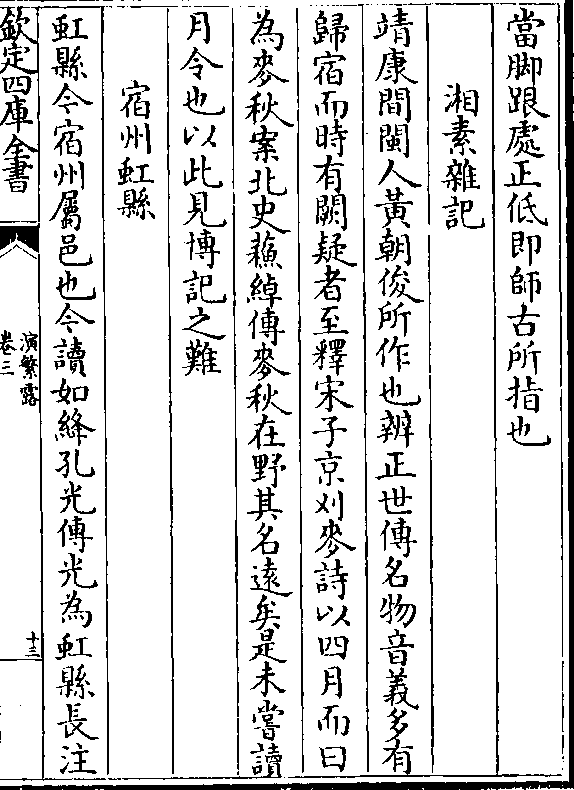 當脚跟處正低即師古所指也
湘素雜記
靖康間閩人黃朝俊所作也辨正世傳名物音義多有
歸宿而時有闕疑者至釋宋子京刈麥詩以四月而曰
為麥秋案北史蘓綽傳麥秋在野其名遠矣是未嘗讀
月令也以此見博記之難
宿州虹縣
虹縣今宿州屬邑也今讀如絳孔光傳光為虹縣長注
欽定四庫全書
演繁露
卷三
十三